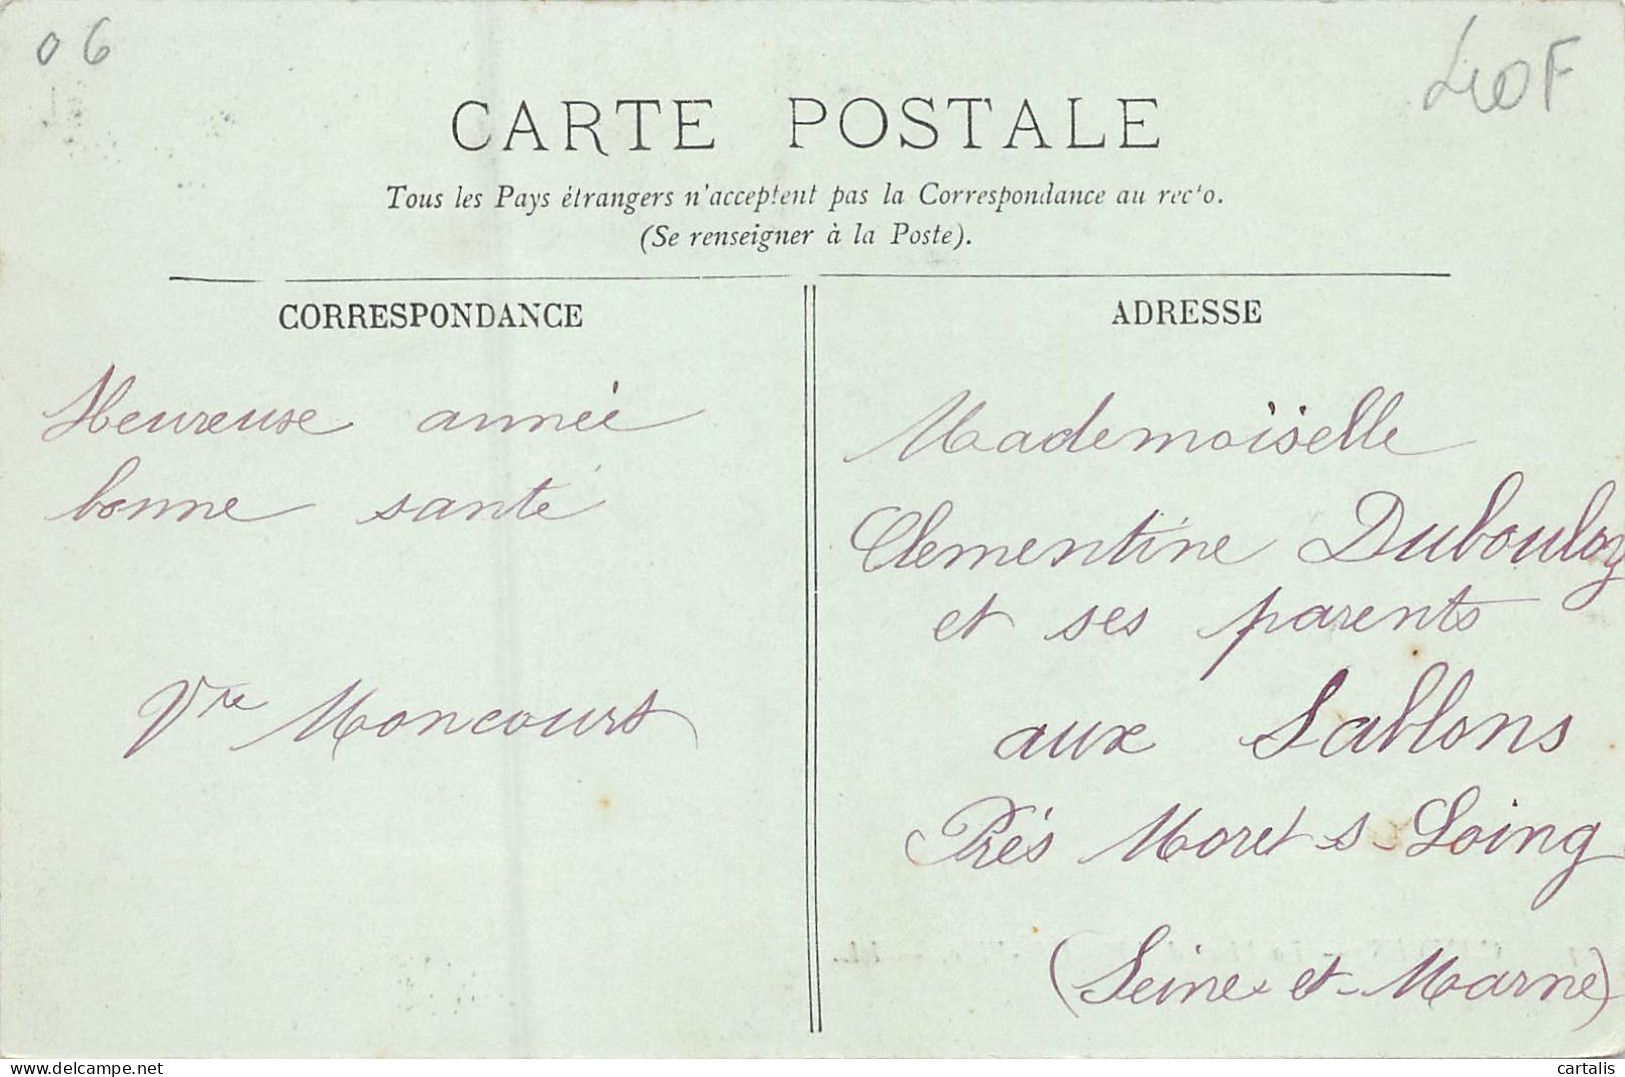 06
40F
CARTE POSTALE
Tous les Pays étrangers n'acceptent pas la Correspondance au recto.
(Se renseigner à la Poste).
CORRESPONDANCE
Heureuse année
bonne santé
Vve Moncourt
ADRESSE
Mademoiselle
Clementine Dubouloy
et ses parents
aux Sablons
Prés Moret s Loing
(Seine et Marne)
www.delcampe.net
cartalis